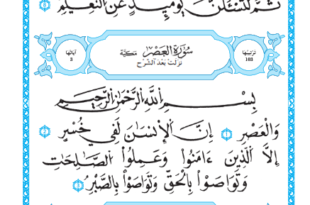 ثُمَّ لَتُسْـَٔلُنَّ يَوْمَئِذٍ عَنِ النَّعِيمِ
ترتيبها
103
سُورَةُ العَصْرِ مَكيّة
نزلت بعد الشرح
آياتها
3
بِسْمِ اللَّهِ الرَّحْمَٰنِ الرَّحِيمِ
وَالْعَصْرِ إِنَّ الْإِنسَٰنَ لَفِي خُسْرٍ
إِلَّا الَّذِينَ ءَامَنُوا وَعَمِلُوا الصَّالِحَاتِ
وَتَوَاصَوْا بِالْحَقِّ وَتَوَاصَوْا بِالصَّبْرِ